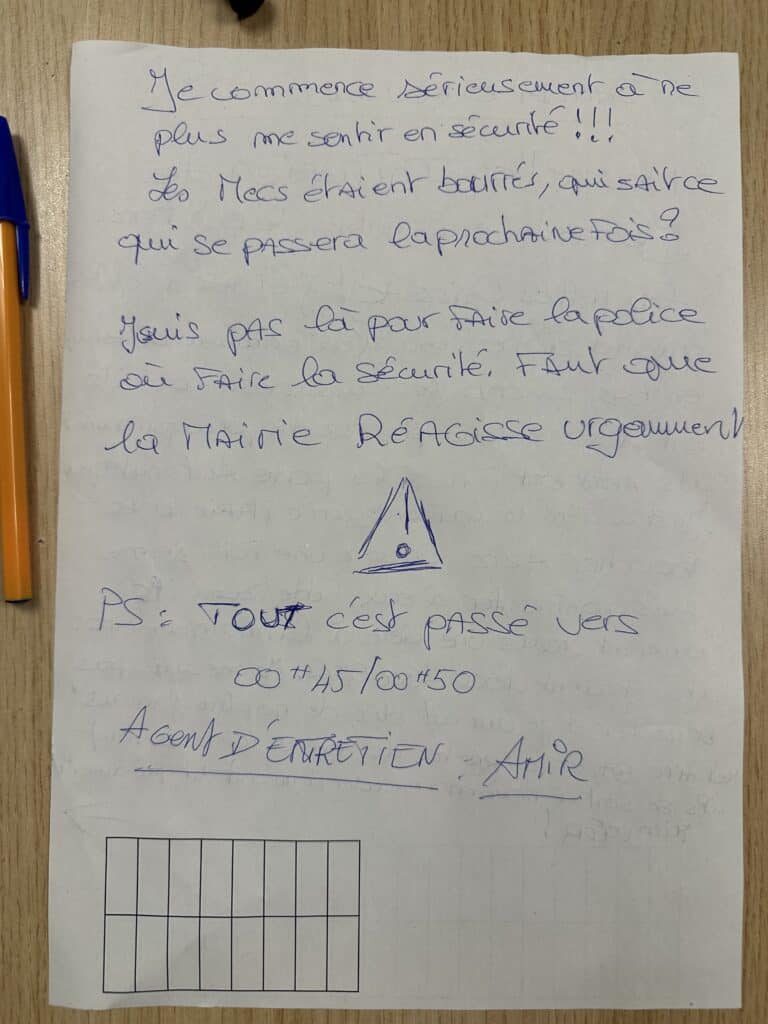 Je commence sérieusement à ne
plus me sentir en sécurité !!!
Les Mecs étaient bourrés, qui sait ce
qui se passera la prochaine fois?
Jsuis pas là pour faire la police
où faire la sécurité. Faut que
la Mairie RÉAGisse urgemment
PS: TOUT c'est passé vers
00H45/00H50
Agent D'ENTRETIEN. AMIR